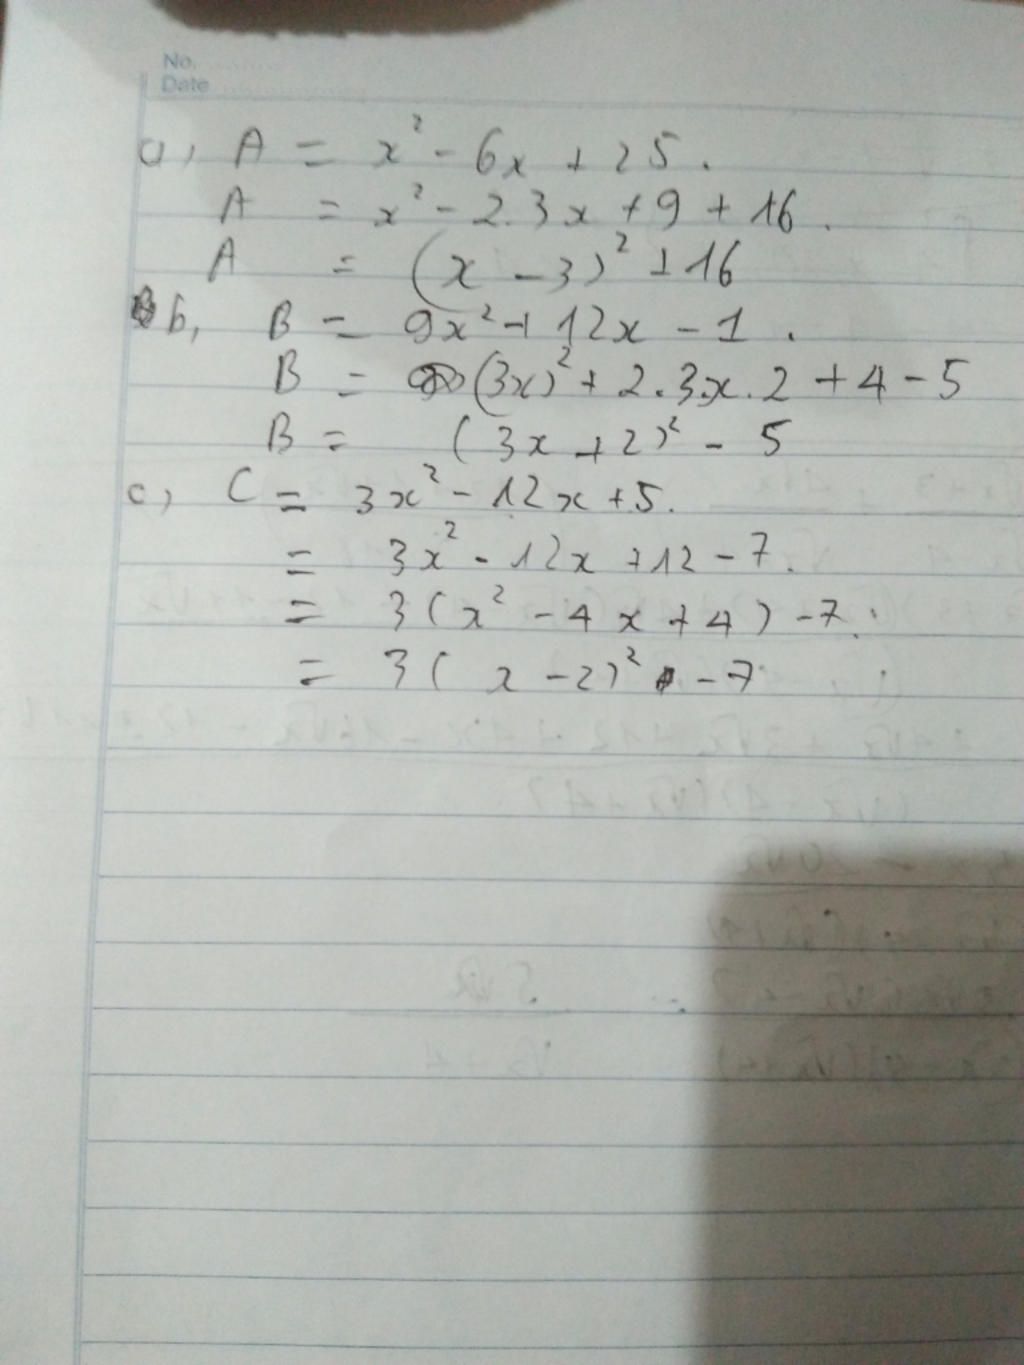 No.
Date
a, A = x² - 6x + 25.
A = x² - 2.3x + 9 + 16.
A = (x - 3)² + 16
b, B = 9x² + 12x - 1.
B = (3x)² + 2.3.x.2 + 4 - 5
B = (3x + 2)² - 5
c, C = 3x² - 12x + 5.
= 3x² - 12x + 12 - 7.
= 3(x² - 4x + 4) - 7.
= 3(x - 2)² - 7